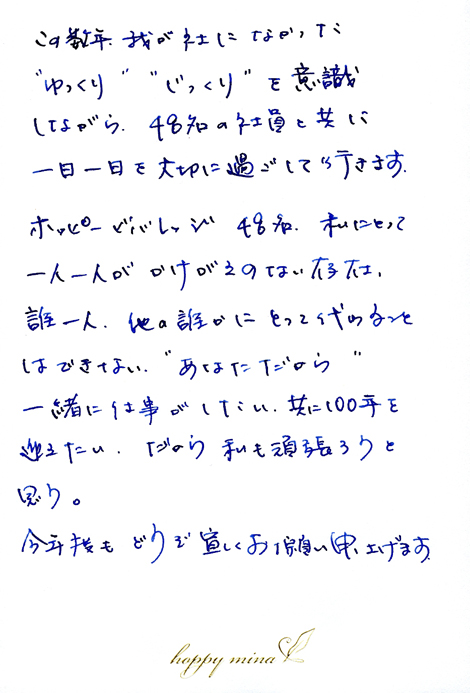 この数年、我が社になかった
"ゆっくり" "じっくり"を意識
しながら、48名の社員と共に
一日一日を大切に過ごして行きます。
ホッピービバレッジ 48名、私にとって
一人一人が かけがえのない存在。
誰一人、他の誰かにとって代わること
はできない。"あなただから"
一緒に仕事がしたい、共に100年を
迎えたい。だから 私も頑張ろうと
思う。
今年度も どうぞ宜しくお願い申し上げます。
hoppy mina